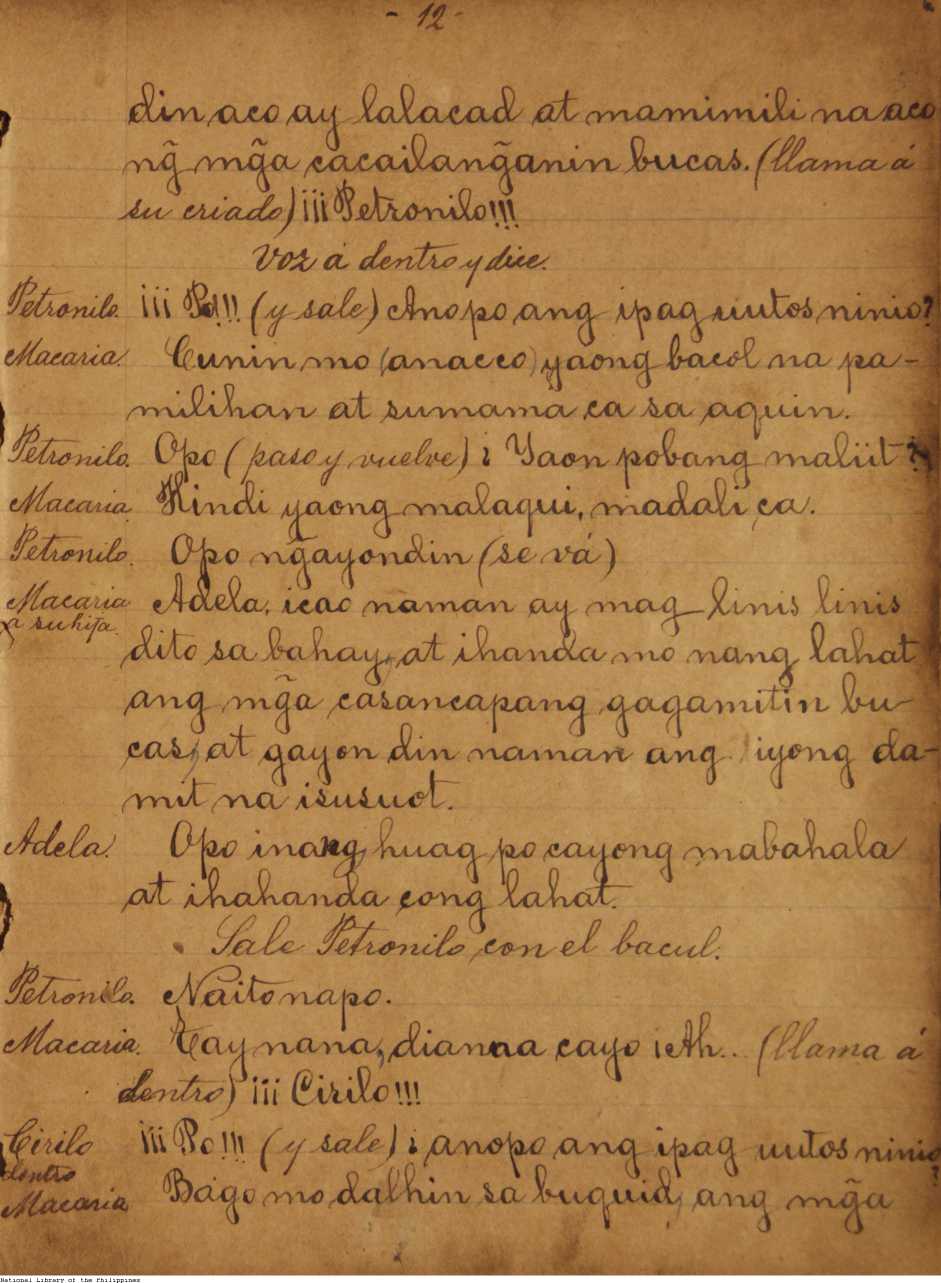 - 12 -
din aco ay lalacad at mamimili na aco
ng̃ mg̃a cacailang̃anin bucas. (llama á
su criado) ¡¡¡Petronilo!!!
Voz á dentro y dice.
Petronilo. ¡¡¡Po!!! (y sale) Ano po ang ipag uutos ninio?
Macaria. Cunin mo (anac co) yaong bacol na pa-
milihan at sumama ca sa aquin.
Petronilo. Opo (paso y vuelve) ¿Yaon pobang maliit?
Macaria. Hindi yaong malaqui, madali ca.
Petronilo. Opo ng̃ayondin (se vá)
Macaria Adela, icao naman ay mag linis linis
a su hija.
dito sa bahay, at ihanda mo nang lahat
ang mg̃a casancapang gagamitin bu-
cas, at gayon din naman ang iyong da-
mit na isusuot.
Adela. Opo inang, huag po cayong mabahala
at ihahanda cong lahat.
Sale Petronilo con el bacul.
Petronilo. Naito napo.
Macaria. Tay nana, dian na cayo ¡Ah.. (llama á
dentro) ¡¡¡Cirilo!!!
Cirilo ¡¡¡Po!!! (y sale) ¿anopo ang ipag uutos ninio?
dentro
Macaria Bago mo dalhin sa buquid, ang mg̃a
National Library of the Philippines